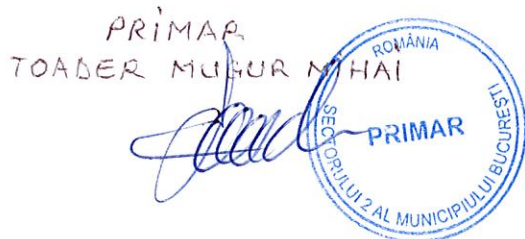 PRIMAR
TOADER MUGUR MIHAI
ROMÂNIA
PRIMAR
SECTORULUI 2 AL MUNICIPIULUI BUCUREȘTI